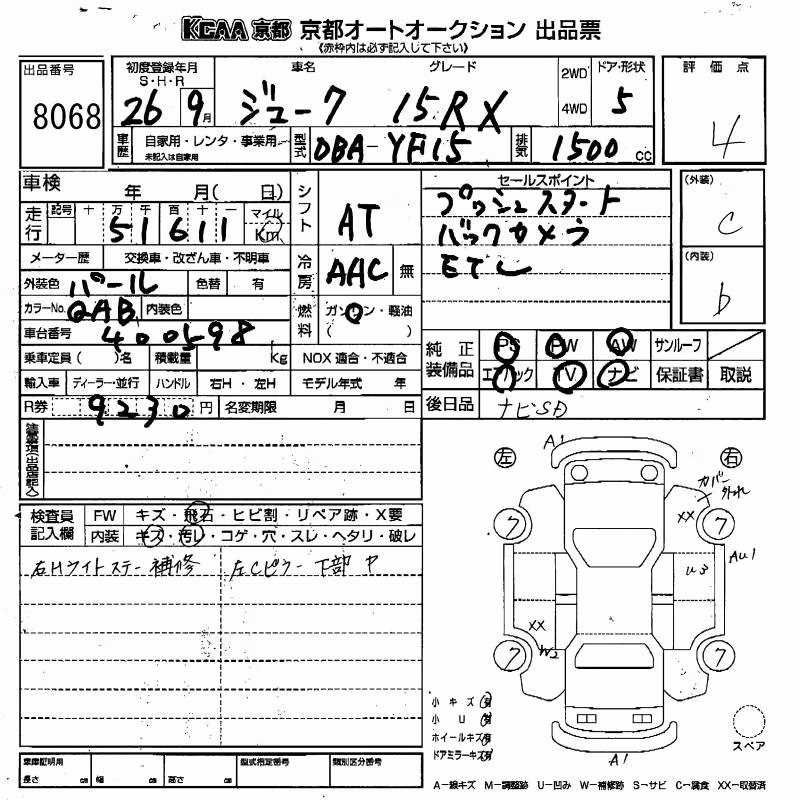 KCAA 京都 京都オートオークション 出品票
《赤枠内は必ず記入して下さい》
出品番号
8068
初度登録年月 車名 グレード 2WD ドア・形状
S・H・R
26 9月 ジューク 15RX 4WD 5
評価点
4
車歴 自家用・レンタ・事業用 型式 DBA-YF15 排気 1500 cc
未記入は自家用
車検 年 月( 日)
シフト AT
走行 記号 十 万 千 百 十 一 マイル
51611 Km
メーター歴 交換車・改ざん車・不明車
冷房 AAC 無
外装色 パール 色替 有
カラーNo. QAB 内装色
燃料 ガソリン・軽油
( )
車台番号 400598
乗車定員( )名 積載量 Kg NOX適合・不適合
輸入車 ディーラー・並行 ハンドル 右H・左H モデル年式 年
R券 9230円 名変期限 月 日
セールスポイント
プッシュスタート
バックカメラ
ETC
(外装)
C
(内装)
b
純正装備品 PS PW AW サンルーフ
エアバック TV ナビ 保証書 取説
後日品 ナビSD
注意事項(出品店記入)
検査員記入欄 FW キズ・飛石・ヒビ割・リペア跡・X要
内装 キズ・汚レ・コゲ・穴・スレ・ヘタリ・破レ
右Hライトステー補修 左Cピラー下部 P
左 A1 右
カバー外れ
XX
ク ク
AU1
U3
XX
W2
ク ク
小キズ有
小U有
ホイールキズ有
ドアミラーキズ有
A1
スペア
車庫証明用 型式指定番号 類別区分番号
長さ cm 幅 cm 高さ cm
A─線キズ M─調整跡 U─凹み W─補修跡 S─サビ C─腐食 XX─取替済